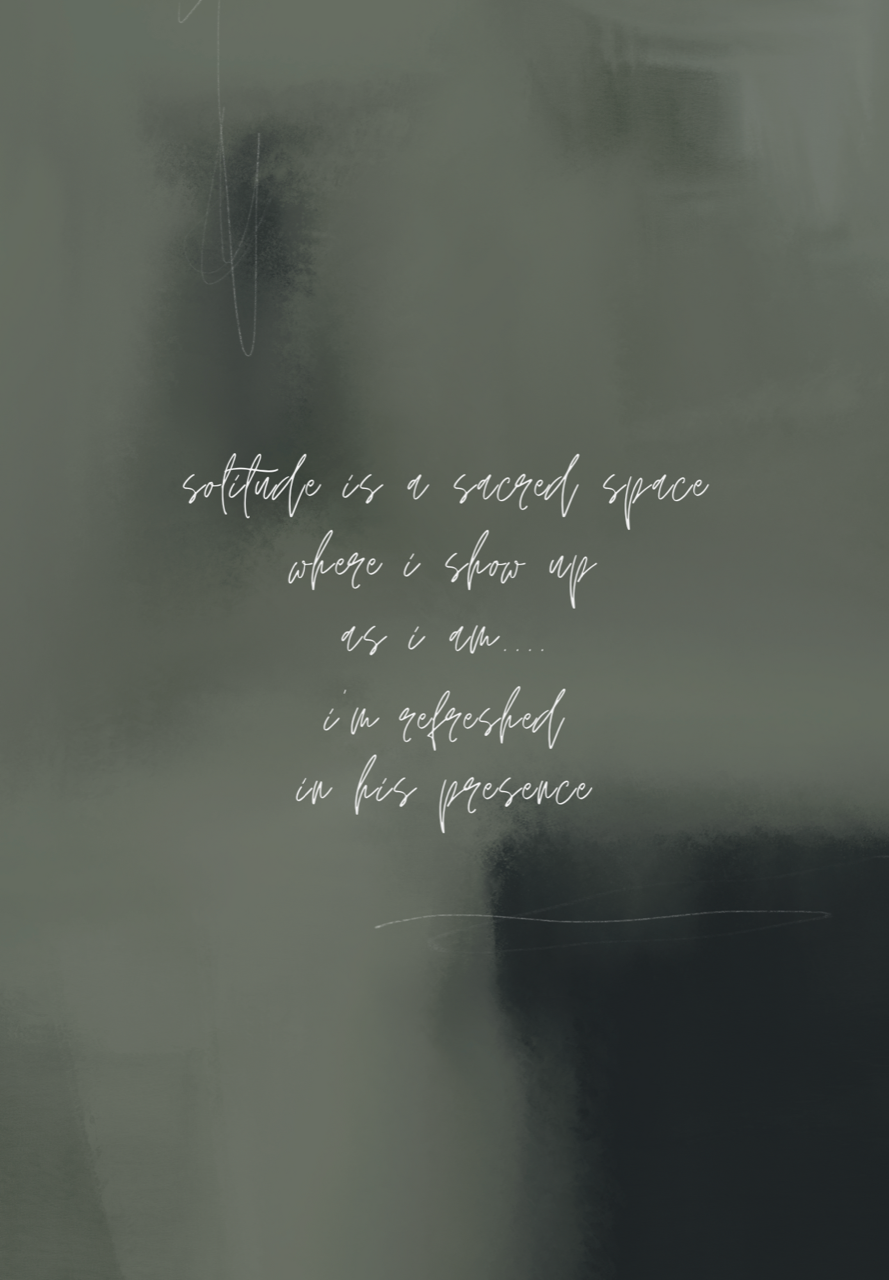 solitude is a sacred space
where i show up
as i am....
i'm refreshed
in his presence